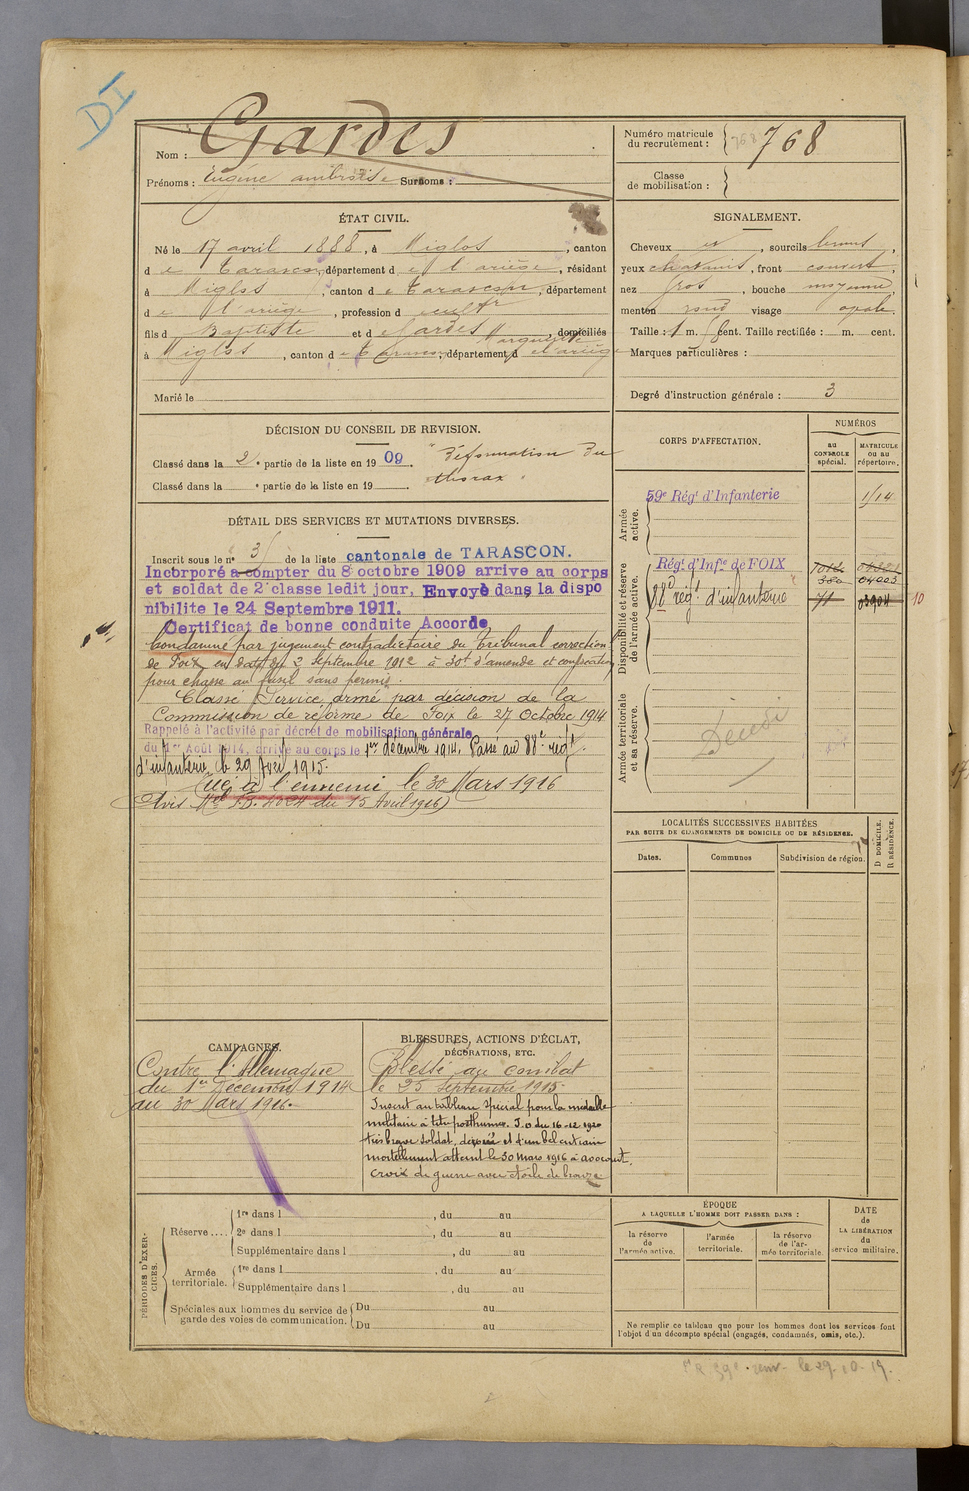 DI
Nom : Gardes
Prénoms : Eugène ambroise Surnoms :
Numéro matricule du recrutement : 768 768
Classe de mobilisation :
ÉTAT CIVIL.
Né le 17 avril 1888, à Miglos, canton
de Tarascon, département de l'ariège, résidant
à Miglos, canton de Tarascon, département
de l'ariège, profession de cultr
fils de Baptiste et de Gardes Marguerite, domiciliés
à Miglos, canton de Tarascon, département de l'ariège
Marié le
SIGNALEMENT.
Cheveux et, sourcils bruns,
yeux chatains, front couvert,
nez gros, bouche moyenne
menton rond visage ovale.
Taille : 1 m. cent. Taille rectifiée : m. cent.
Marques particulières :
Degré d'instruction générale : 3
DÉCISION DU CONSEIL DE REVISION.
Classé dans la 2e partie de la liste en 1909. "Déformation du
Classé dans la e partie de la liste en 19 . thorax".
DÉTAIL DES SERVICES ET MUTATIONS DIVERSES.
Inscrit sous le n° de la liste cantonale de TARASCON.
Incorporé a compter du 8 octobre 1909 arrive au corps
et soldat de 2e classe ledit jour, Envoyé dans la dispo
nibilite le 24 Septembre 1911.
Certificat de bonne conduite Accorde
Condamné par jugement contradictoire du Tribunal correction
de Foix en date du 3 Septembre 1912 à 30f d'amende et confiscation
pour chasse au fusil sans permis.
Classé Service armé par décision de la
Commission de réforme de Foix le 27 Octobre 1914
Rappelé à l'activité par décret de mobilisation générale
du 1er Août 1914, arrivé au corps le 1er décembre 1914. Passé au 88e régt
d'infanterie le 29 1915.
Tué à l'ennemi le 30 Mars 1916
(Avis Mel du 15 Avril 1916)
CORPS D'AFFECTATION.
NUMÉROS
au CONTROLE spécial.
MATRICULE ou au répertoire.
Armée active.
59e Régt d'Infanterie 1/14
Disponibilité et réserve de l'armée active.
Régt d'Infie de FOIX
380 04003
88e régt d'infanterie 71 03904 10
Armée territoriale et sa réserve.
Décédé
LOCALITÉS SUCCESSIVES HABITÉES
PAR SUITE DE CHANGEMENTS DE DOMICILE OU DE RÉSIDENCE.
Dates.
Communes
Subdivision de région.
D DOMICILE.
R RÉSIDENCE.
CAMPAGNES.
Contre l'Allemagne
du 1er Décembre 1914
au 30 Mars 1916.
BLESSURES, ACTIONS D'ÉCLAT,
DÉCORATIONS, ETC.
Blessé au combat
le 25 Septembre 1915.
Inscrit au tableau spécial pour la médaille
militaire à titre posthume. J.O du 16-12 1920
très brave soldat, dévoué et d'un bel entrain
mortellement atteint le 30 mars 1916 à avocourt.
croix de guerre avec étoile de bronze
PÉRIODES D'EXERCICES.
Réserve ....
1re dans l , du au
2e dans l , du au
Supplémentaire dans l , du au
Armée territoriale.
1re dans l , du au
Supplémentaire dans l , du au
Spéciales aux hommes du service de
garde des voies de communication.
Du au
Du au
ÉPOQUE
A LAQUELLE L'HOMME DOIT PASSER DANS :
la réserve de l'armée active.
l'armée territoriale.
la réserve de l'armée territoriale.
DATE
de
LA LIBÉRATION
du
service militaire.
Ne remplir ce tableau que pour les hommes dont les services font
l'objet d'un décompte spécial (engagés, condamnés, omis, etc.).
59e le 29.10.19.